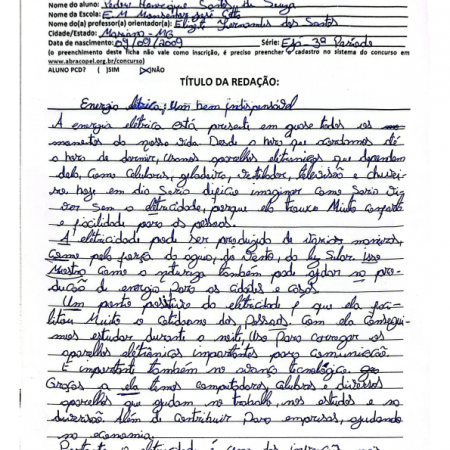 Nome do aluno: Pedro Henrique Santos de Souza
Nome da Escola: E.M. Monsenhor José Cotta
Nome do(a) professor(a) orientador(a): Elizete Fernandes dos Santos
Cidade/Estado: Mariana - MG
Data de nascimento: 09/09/2009 Série: EJA - 3º Período
(o preenchimento desta ficha não vale como inscrição, é preciso preencher o cadastro no sistema do concurso em
www.abracopel.org.br/concurso)
ALUNO PCD? ( )SIM (X)NÃO
TÍTULO DA REDAÇÃO:
Energia elétrica: Um bem indispensável
A energia elétrica está presente em quase todos os
momentos da nossa vida Desde a hora que acordamos até
a hora de dormir, usamos aparelhos eletrônicos que dependem
dela, Como Celulares, geladeira, Ventilador, televisão e chuvei-
ro, hoje em dia Seria difícil imaginar como Seria
Sem a eletricidade, porque ela trouxe Muito conforto
e facilidade para as pessoas.
A eletricidade pode Ser produzida de várias maneiras,
Como pela força da água, do Vento, da luz Solar. isso
Mostra Como a natureza também pode ajudar na pro-
dução de energia Para as cidades e casas.
Um ponto positivo da eletricidade é que ela faci-
litou Muito o cotidiano das Pessoas, Com ela Consegui-
mos estudar durante a noite, Para carregar os
aparelhos eletrônicos importantes para Comunicação.
É importante também no avanço tecnológico.
Graças a ela temos computadores celulares e diversos
aparelhos que ajudam no trabalho, nos estudos e na
diversão. Além de Contribuir Para empresas, ajudando
na economia.
Portanto a eletricidade é uma das